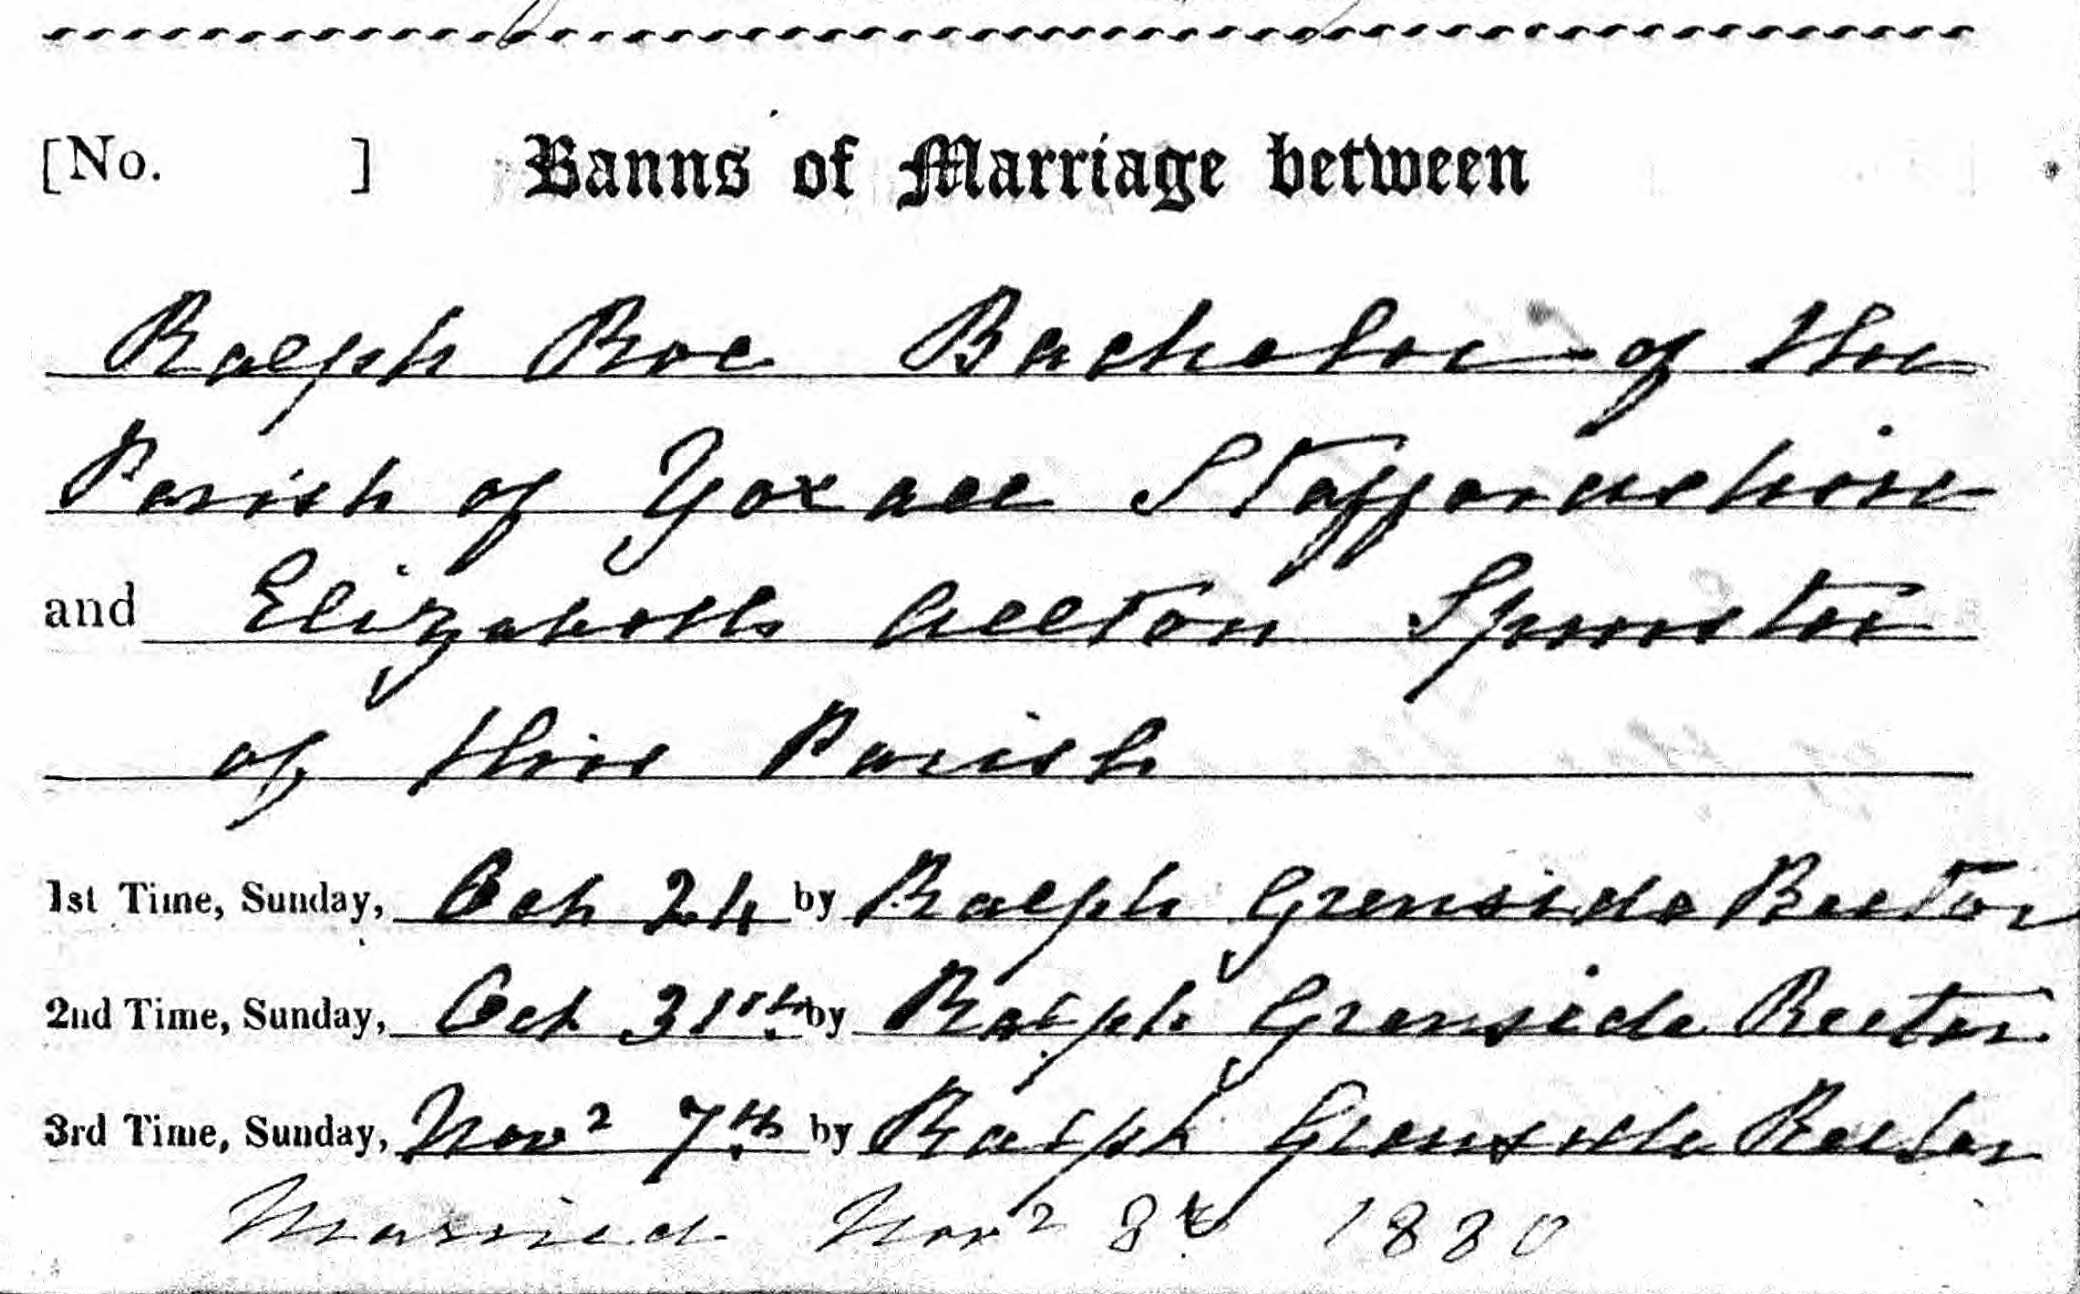 [No. ] Banns of Marriage between
Ralph Roe Bachelor of the
Parish of Yoxall Staffordshire
and Elizabeth Allton Spinster
of this Parish
1st Time, Sunday, Oct 24 by Ralph Grenside Rector
2nd Time, Sunday, Oct 31st by Ralph Grenside Rector
3rd Time, Sunday, Novr 7th by Ralph Grenside Rector
Married Novr 8th 1880